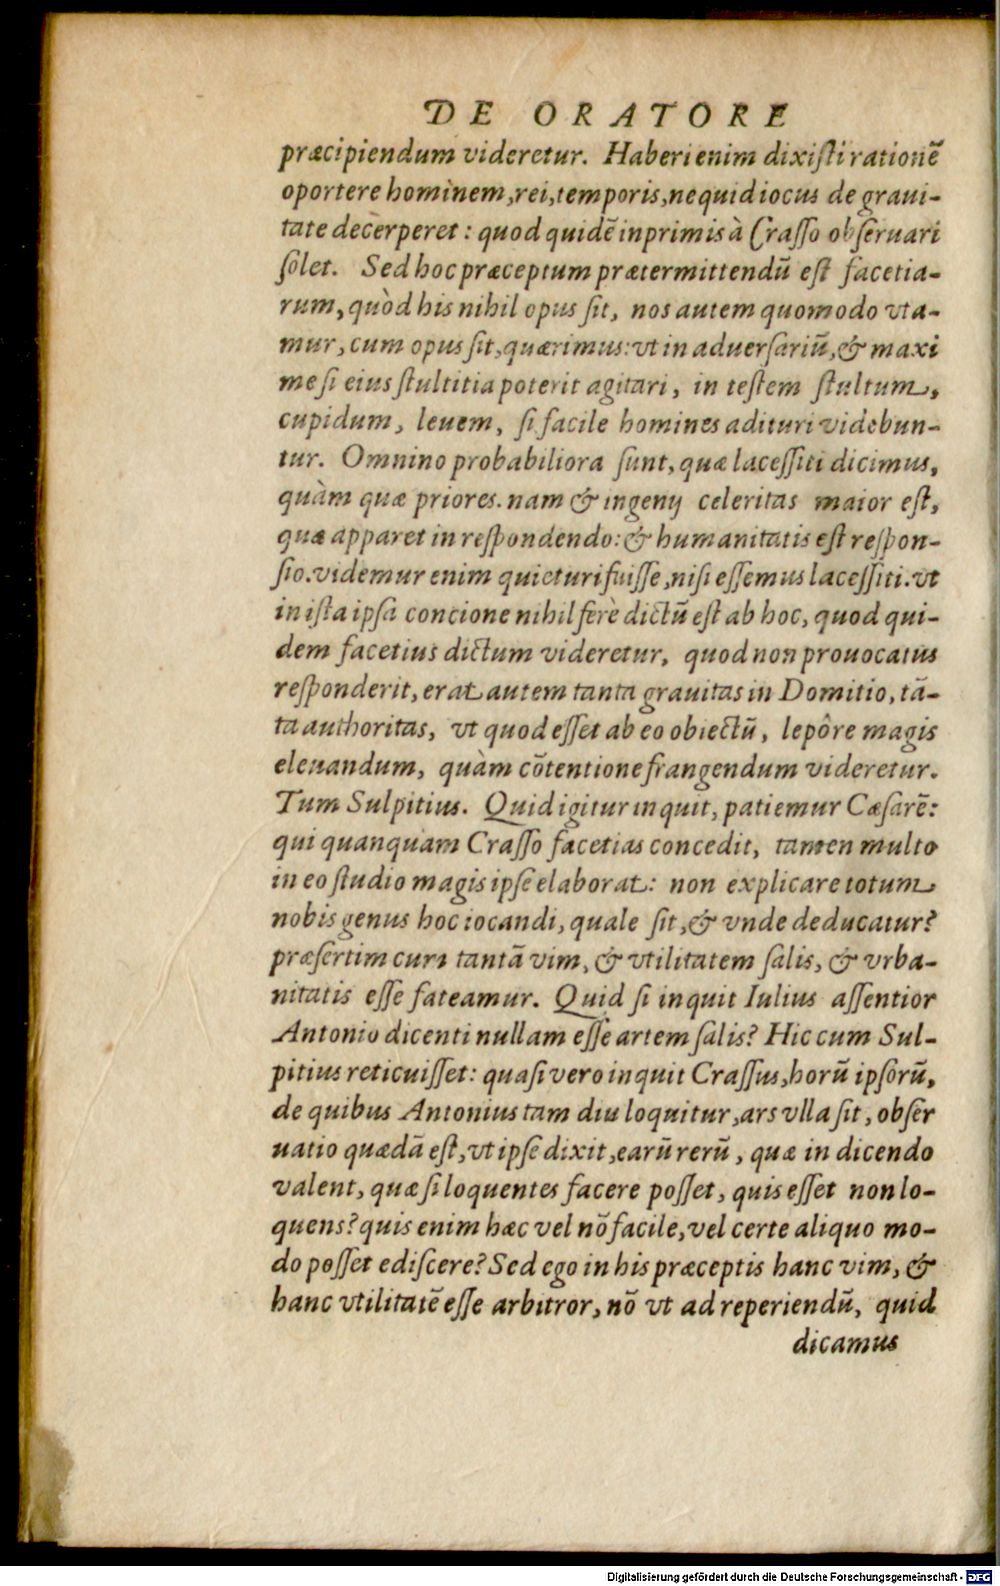 DE ORATORE
præcipiendum videretur. Haberi enim dixiſti rationẽ
oportere hominem, rei, temporis, ne quid iocus de graui-
tate decèrperet: quod quidẽ inprimis à Craſſo obſeruari
ſolet. Sed hoc præceptum prætermittendũ eſt facetia-
rum, quòd his nihil opus ſit, nos autem quomodo vta-
mur, cum opus ſit, quærimus: vt in aduerſariũ, & maxi
me ſi eius ſtultitia poterit agitari, in teſtem ſtultum,
cupidum, leuem, ſi facile homines adituri videbun-
tur. Omnino probabiliora ſunt, quæ laceſſiti dicimus,
quàm quæ priores. nam & ingenij celeritas maior eſt,
quæ apparet in reſpondendo: & humanitatis eſt reſpon-
ſio. videmur enim quieturi fuiſſe, niſi eſſemus laceſſiti. vt
in iſta ipſa concione nihil ferè dictũ eſt ab hoc, quod qui-
dem facetius dictum videretur, quod non prouocatus
reſponderit, erat autem tanta grauitas in Domitio, tã-
ta authoritas, vt quod eſſet ab eo obiectũ, lepôre magis
eleuandum, quàm cõtentione frangendum videretur.
Tum Sulpitius. Quid igitur inquit, patiemur Cæſarẽ:
qui quanquam Craſſo facetias concedit, tamen multo
in eo ſtudio magis ipſe elaborat: non explicare totum
nobis genus hoc iocandi, quale ſit, & vnde deducatur?
præſertim cum tantã vim, & vtilitatem ſalis, & vrba-
nitatis eſſe fateamur. Quid ſi inquit Iulius aſſentior
Antonio dicenti nullam eſſe artem ſalis? Hic cum Sul-
pitius reticuiſſet: quaſi vero inquit Craſſus, horũ ipſorũ,
de quibus Antonius tam diu loquitur, ars vlla ſit, obſer
uatio quædã eſt, vt ipſe dixit, earũ rerũ, quæ in dicendo
valent, quæ ſi loquentes facere poſſet, quis eſſet non lo-
quens? quis enim hæc vel nõ facile, vel certe aliquo mo-
do poſſet ediſcere? Sed ego in his præceptis hanc vim, &
hanc vtilitatẽ eſſe arbitror, nõ vt ad reperiendũ, quid
dicamus
Digitalisierung gefördert durch die Deutsche Forschungsgemeinschaft - DFG